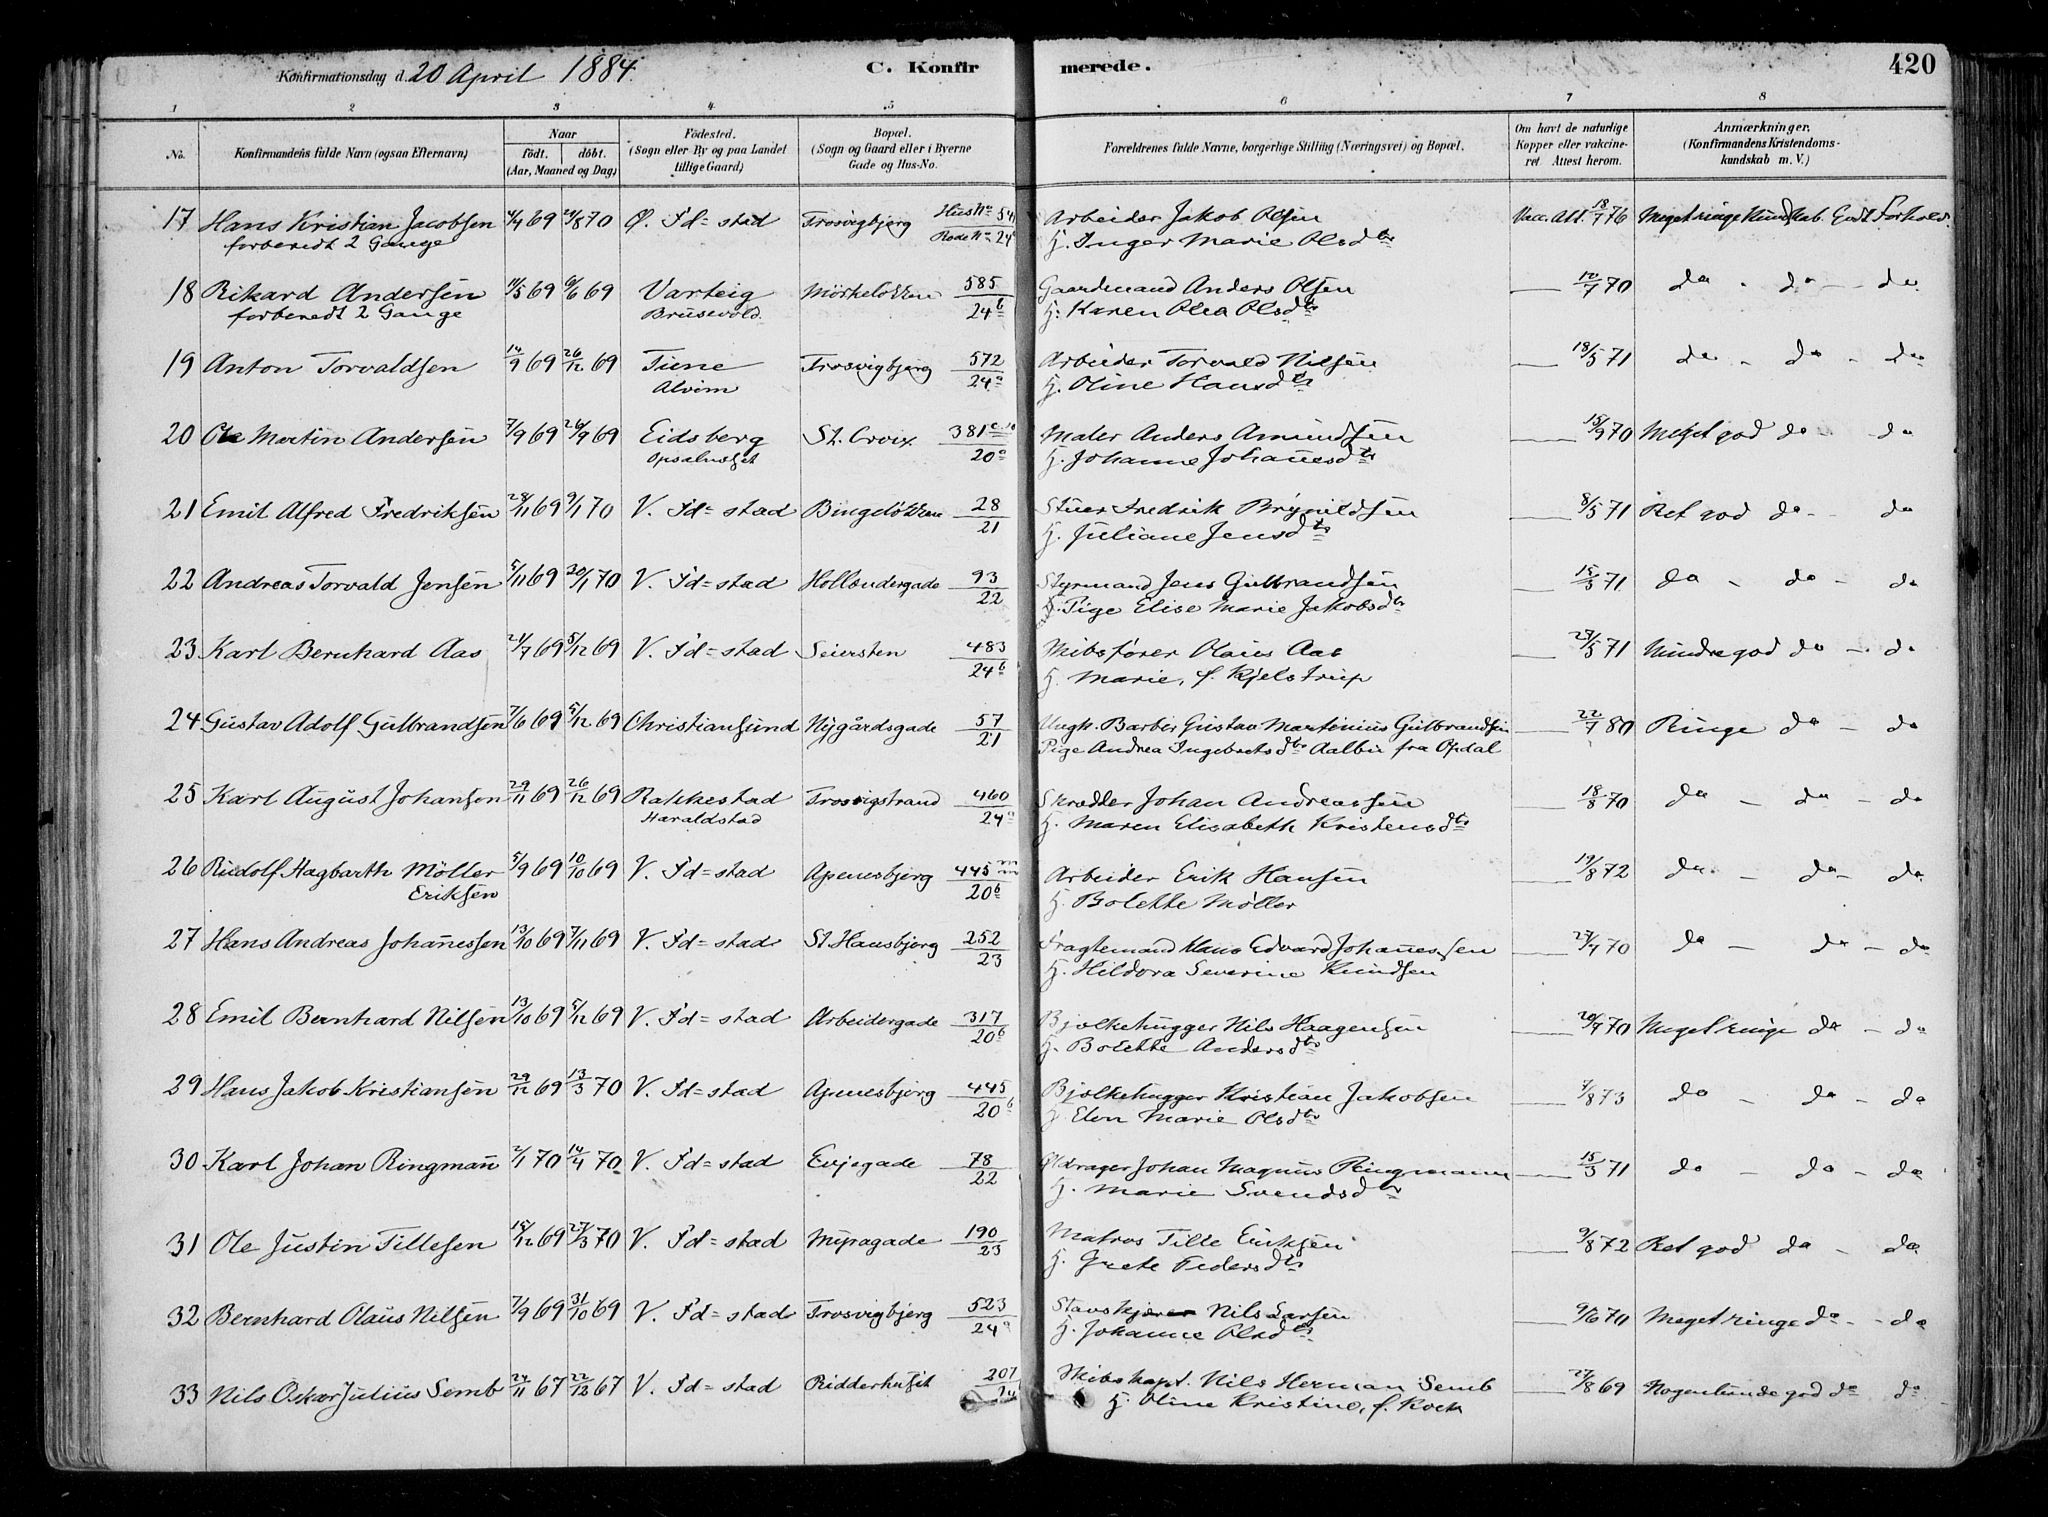 Konfirmationsdag d. 20 April 1884.
C. Konfirmerede.
420
1 2 3 4 5 6 7 8
No.
Konfirmandens fulde Navn (ogsaa Efternavn).
Naar
födt. döbt.
(Aar, Maaned og Dag)
Födested.
(Sogn eller By og paa Landet
tillige Gaard)
Bopæl.
(Sogn og Gaard eller i Byerne
Gade og Hus-No.
Forældrenes fulde Navne, borgerlige Stilling (Næringsvei) og Bopæl.
Om havt de naturlige
Kopper eller vakcine-
ret Attest herom.
Anmærkninger.
(Konfirmandens Kristendoms-
kundskab m. V.)
17 Hans Kristian Jacobsen 4/4 69 29/8 70 Ø. Fd=stad Trosvigbjerg Hus No 541 Arbeider Jakob Olsen Vacc. Att. 18/7 76 Meget ringe Kundskab. Godt Forhold.
forberedt 2 Gange Rode No 24 H. Inger Marie Olsdtr
18 Rikard Andersen 11/5 69 6/6 69 Varteig Mørkeløkken 585 Gaardmand Anders Olsen — 12/7 70 do - do - do
forberedt 2 Gange Brusevold. 24b H. Karen Olea Olsdtr
19 Anton Torvaldsen 14/9 69 26/12 69 Tune Trosvigbjerg 572 Arbeider Torvald Nilsen — 18/5 71 do - do - do
Alvim 24a H. Oline Hansdtr
20 Ole Martin Andersen 7/9 69 26/9 69 Eidsberg St. Croix 381 Maler Anders Amundsen — 15/9 70 Meget god do - do
20a H. Johanne Johannesdtr
21 Emil Alfred Fredriksen 28/11 69 9/1 70 V. Fd=stad Bingeløkken 28 Stuer Fredrik Brynildsen — 8/5 71 Ret god do - do
21 H. Juliane Jensdtr
22 Andreas Torvald Jensen 5/11 69 30/1 70 V. Fd=stad Hollændergade 93 Styrmand Jens Gulbrandsen — 15/3 71 do - do - do
22 Pige Elise Marie Jakobsdtr
23 Karl Bernhard Aas 21/7 69 5/12 69 V. Fd=stad Seiersten 483 Skibsfører Olaus Aas — 27/5 71 Mindre god do - do
24b H. Marie, f. Kjelstrup
24 Gustav Adolf Gulbrandsen 7/6 69 5/12 69 Christiansund Nygårdsgade 57 Ungk. Barber Gustav Martinius Gulbrandsen — 22/7 80 Ringe do - do
21 Pige Andrea Ingebretsdtr Aalbu fra Opdal
25 Karl August Johansen 29/11 69 26/12 69 Rakkestad Trosvigstrand 460 Skrædder Johan Andreassen — 18/8 70 do - do - do
Haraldstad 24a H. Maren Elisabeth Kristensdtr
26 Rudolf Hagbarth Möller 5/9 69 10/10 69 V. Fd=stad Apenesbjerg 445 Arbeider Erik Hansen — 19/8 72 do - do - do
Eriksen 20b H. Bolette Møller
27 Hans Andreas Johannessen 13/10 69 7/11 69 V. Fd=stad St. Hansbjerg 252 Fragtemand Hans Edvard Johannessen — 27/7 70 do - do - do
23 H. Hildora Severine Knudsen
28 Emil Bernhard Nilsen 13/10 69 5/12 69 V. Fd=stad Arbeidergade 317 Bjelkehugger Nils Haagensen — 20/7 70 Meget ringe do - do
20b H. Bolette Andersdtr
29 Hans Jakob Kristiansen 29/12 69 13/3 70 V. Fd=stad Apenesbjerg 445 Bjelkehugger Kristian Jakobsen — 7/8 73 do - do - do
20b H. Elen Marie Olsdtr
30 Karl Johan Ringmann 2/1 70 14/4 70 V. Fd=stad Evjegade 78 Øldrager Johan Magnus Ringmann — 15/3 71 do - do - do
22 H. Marie Svendsdtr
31 Ole Justin Tillesen 15/12 69 27/3 70 V. Fd=stad Myragade 190 Matros Tille Eriksen — 9/8 72 Ret god do - do
23 H. Grete Pedersdtr
32 Bernhard Olaus Nilsen 7/9 69 31/10 69 V. Fd=stad Trosvigbjerg 523 Nils Larsen — 9/6 70 Meget ringe do - do
24a H. Johanne Olsdtr
33 Nils Oskar Julius Semb 24/11 67 22/12 67 V. Fd=stad Ridderhuset 207 Skibskapt. Nils Herman Semb — 27/8 69 Nogenlunde god do do
H. Oline Kristine, f. Kock